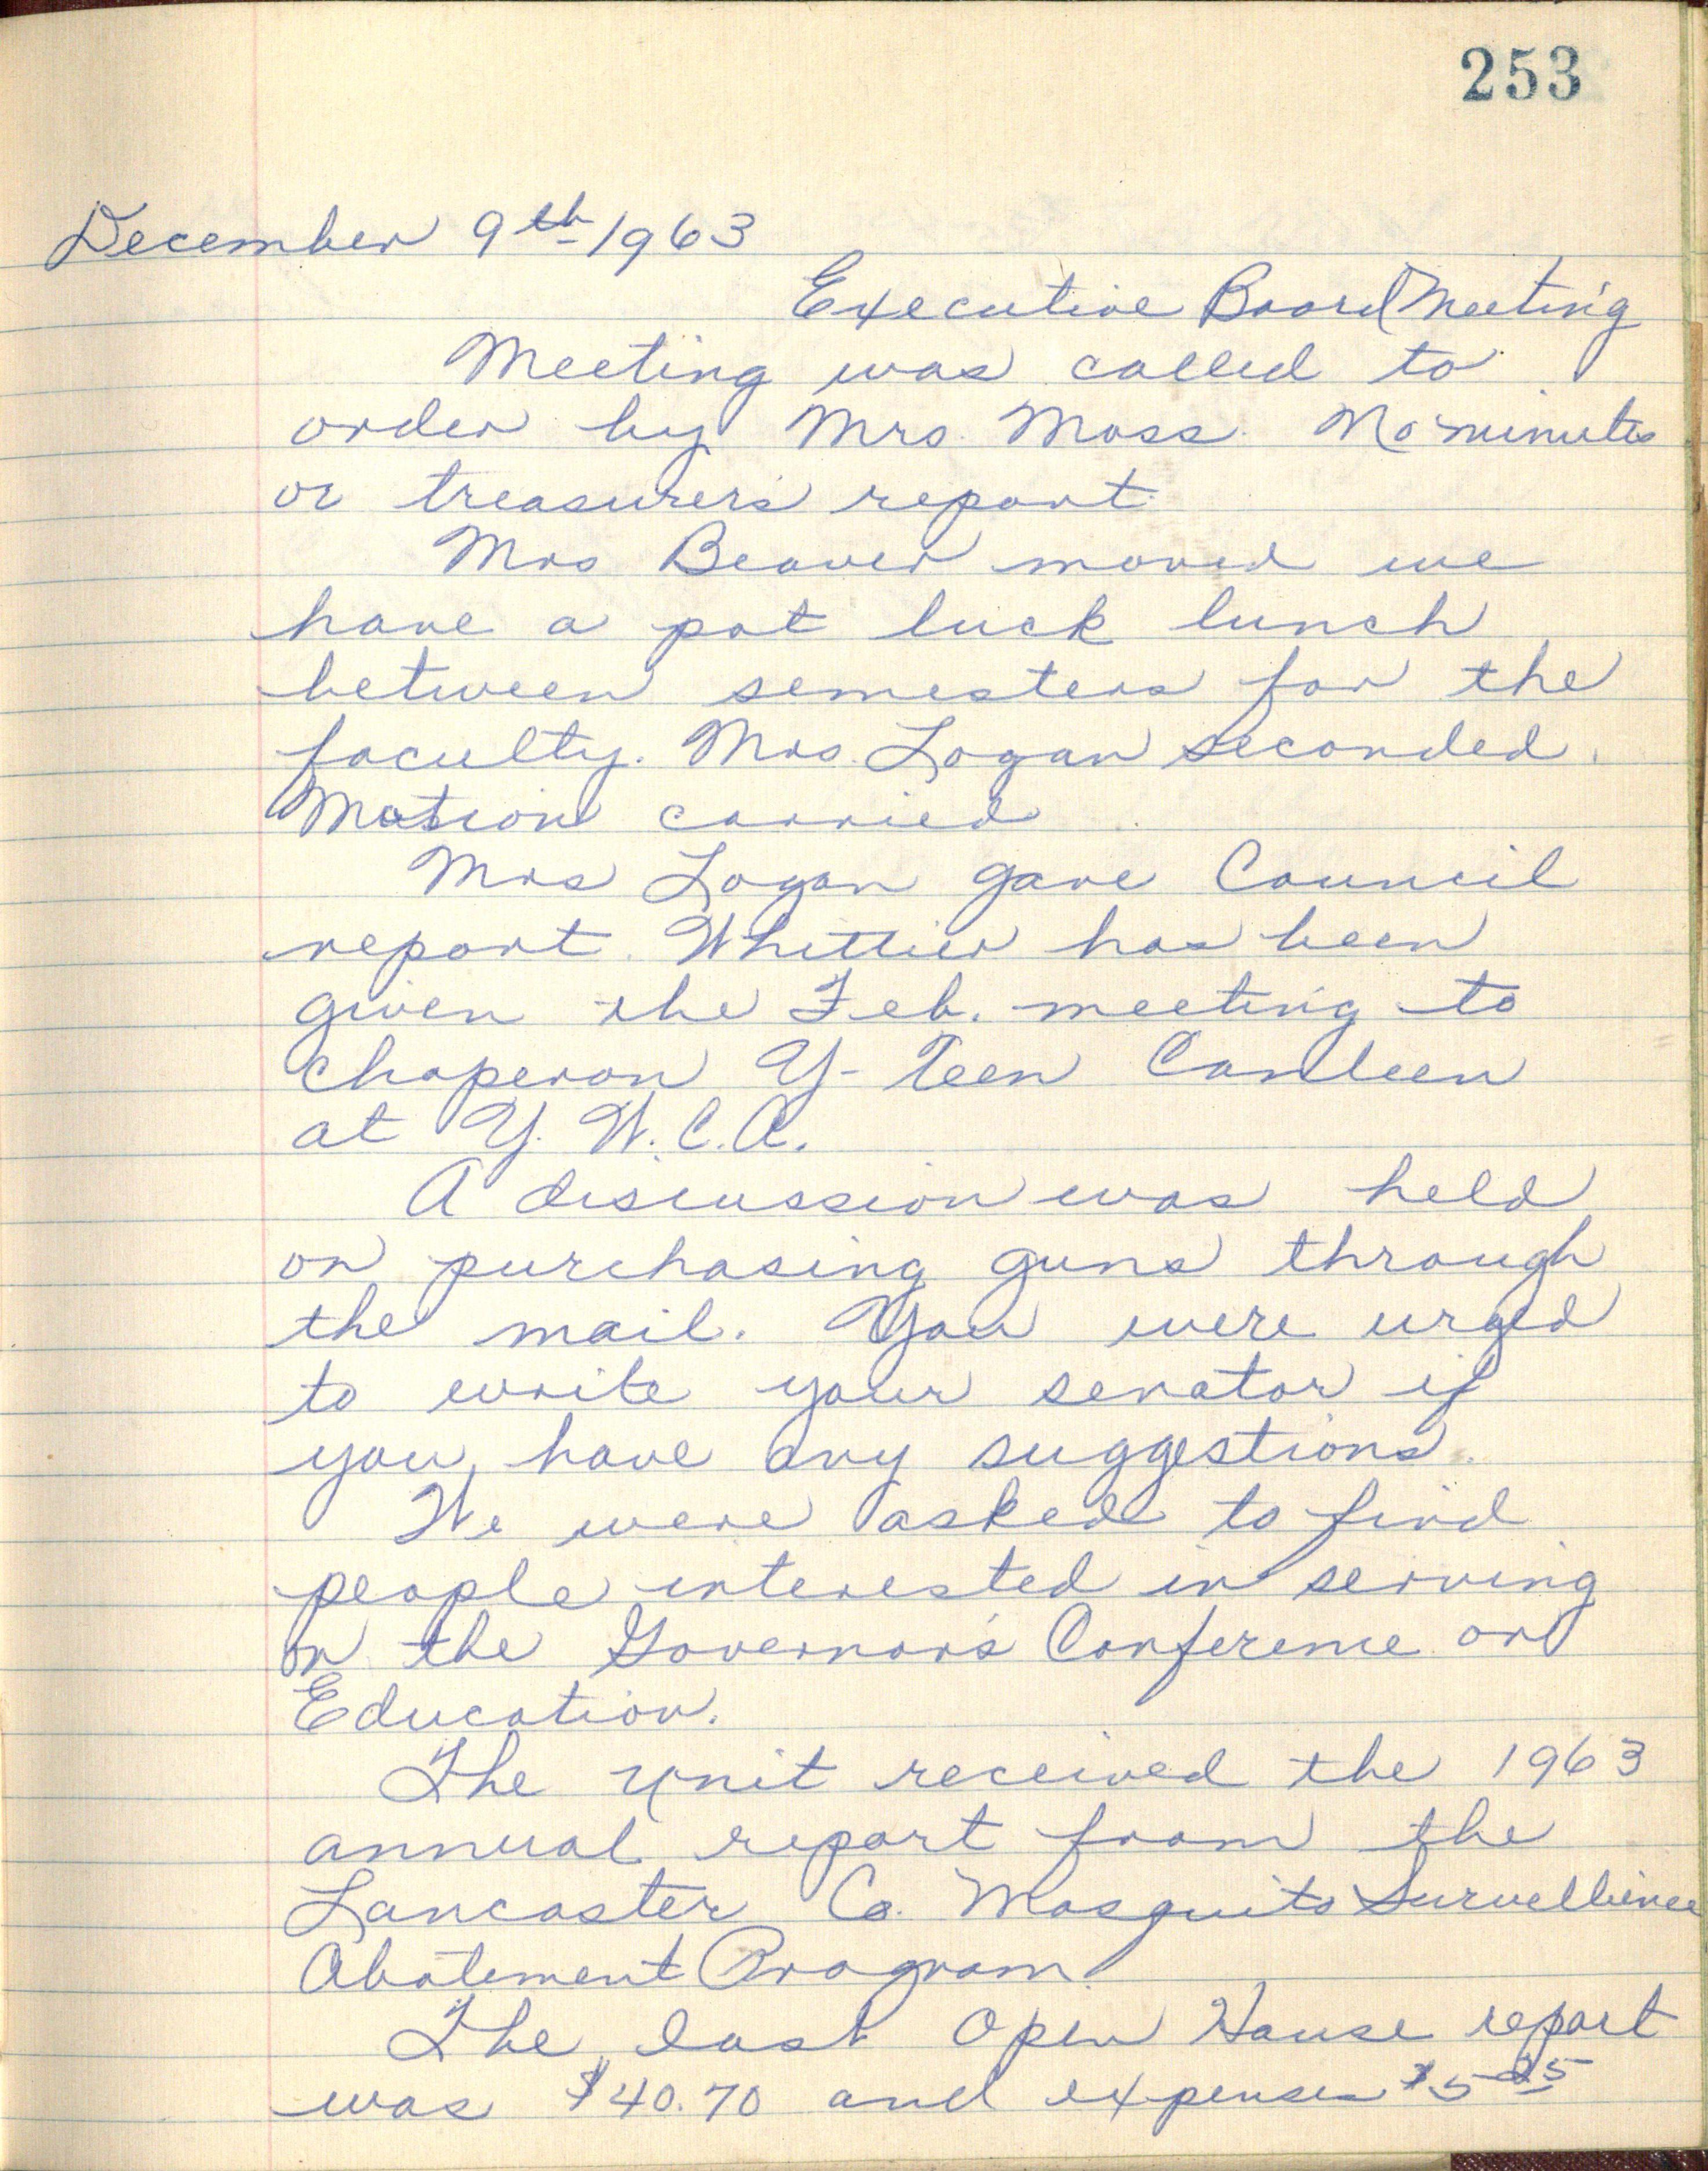 253
December 9th 1963
Executive Board Meeting
Meeting was called to
order by Mrs. Moss. No minutes
or treasurer's report.
Mrs Beaver moved we
have a pot luck lunch
between semesters for the
faculty. Mrs. Logan seconded.
Motion carried
Mrs Logan gave Council
report. Whittier has been
given the Feb. meeting to
chaperon Y-Teen Canteen
at Y.W.C.A.
A discussion was held
on purchasing guns through
the mail. You were urged
to write your senator if
you have any suggestions.
We were asked to find
people interested in serving
on the Governor's Conference on
Education.
The Unit received the 1963
annual report from the
Lancaster Co. Mosquito Survellience
Abatement Program.
The last Open House report
was $40.70 and expenses $5.25